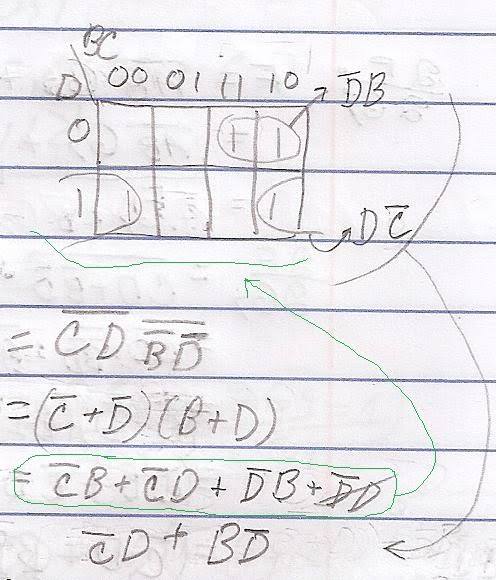 BC
D 00 01 11 10 D̅B
0 1 1
1 1 1 DC̅
= \overline{CD} \overline{B̅D̅}
= (C̅+D̅)(B+D)
= C̅B+C̅D+D̅B+D̅D
C̅D+BD̅